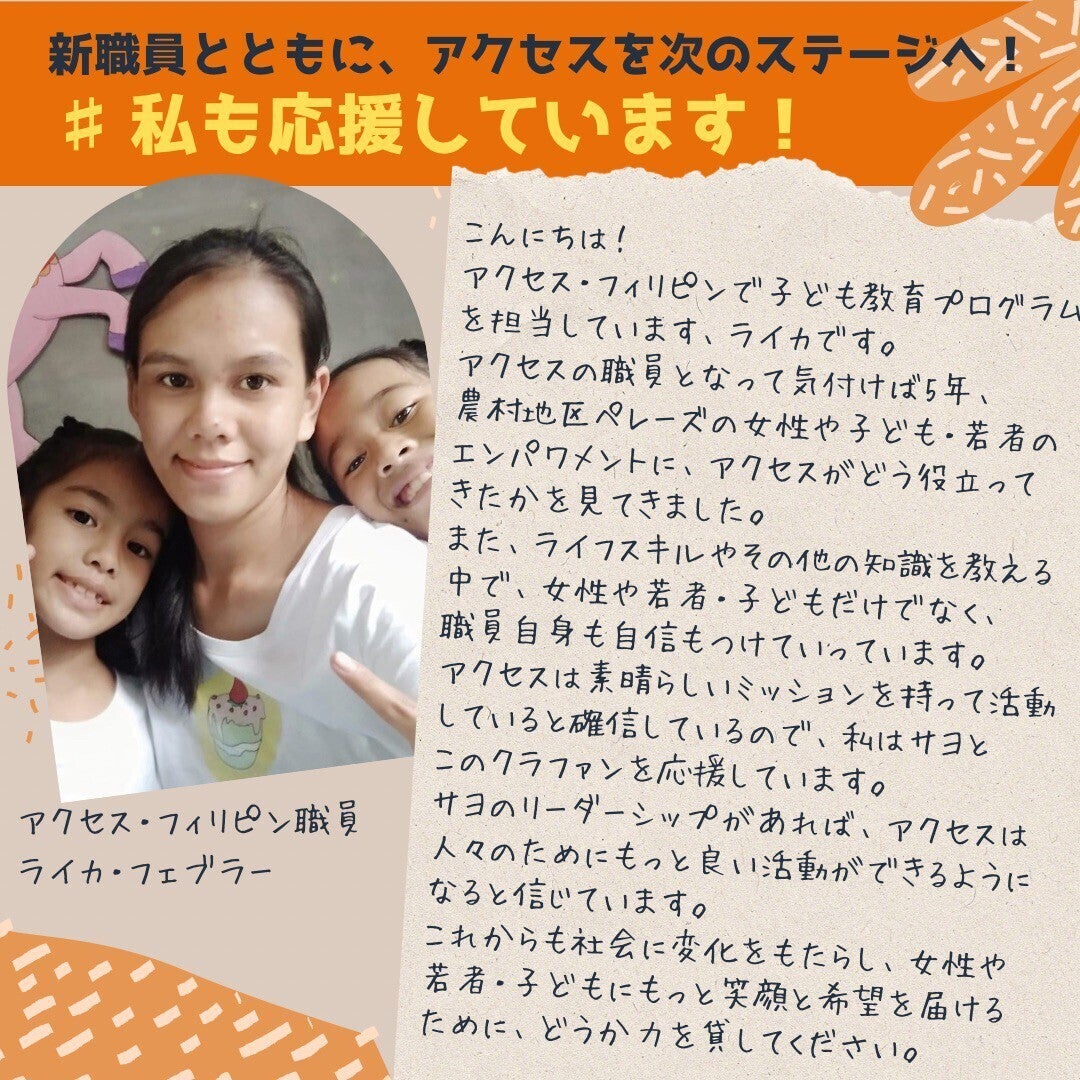 新職員とともに、アクセスを次のステージへ！
＃私も応援しています！
こんにちは！
アクセス・フィリピンで子ども教育プログラム
を担当しています、ライカです。
アクセスの職員となって気付けば5年、
農村地区ペレーズの女性や子ども・若者の
エンパワメントに、アクセスがどう役立って
きたかを見てきました。
また、ライフスキルやその他の知識を教える
中で、女性や若者・子どもだけでなく、
職員自身も自信もつけていっています。
アクセスは素晴らしいミッションを持って活動
していると確信しているので、私はサヨと
このクラファンを応援しています。
サヨのリーダーシップがあれば、アクセスは
人々のためにもっと良い活動ができるように
なると信じています。
これからも社会に変化をもたらし、女性や
若者・子どもにもっと笑顔と希望を届ける
ために、どうか力を貸してください。
アクセス・フィリピン職員
ライカ・フェブラー